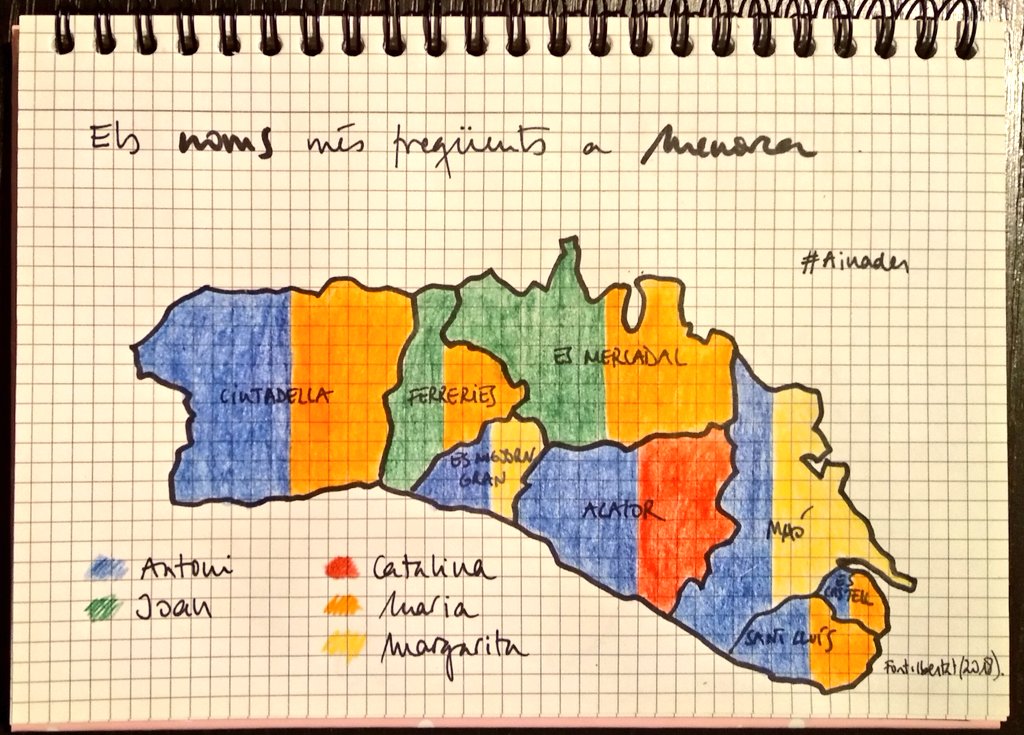 Els noms més freqüents a Menorca
#Ainades
ES MERCADAL
CIUTADELLA
FERRERIES
ES MEJORN
GRAN
ALAIOR
MAÓ
Antoni
Catalina
ES
CASTELL
Joan
Maria
SANT LLUÍS
Margarita
(2018).